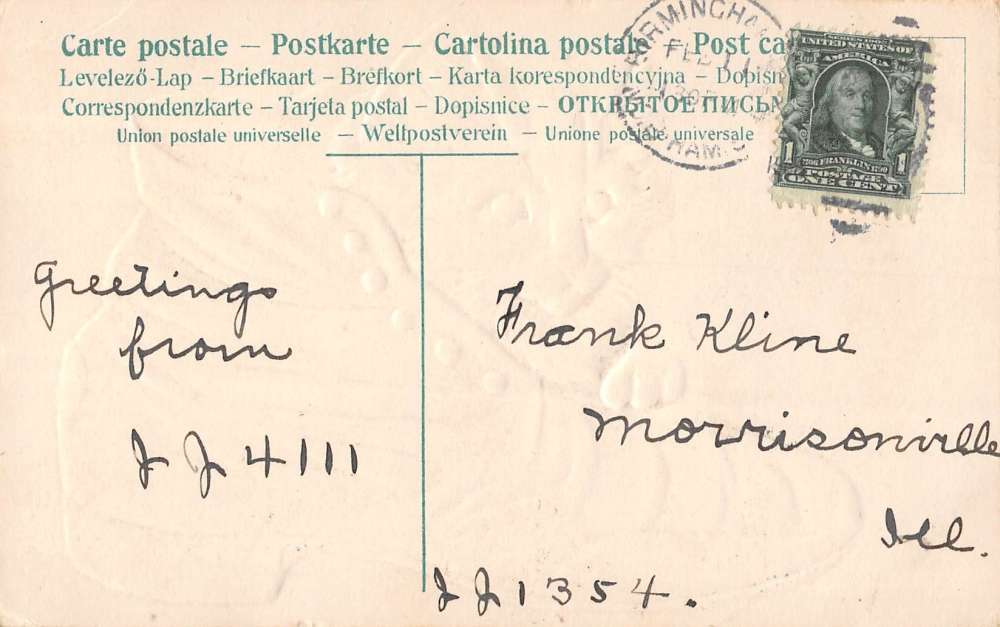 Carte postale – Postkarte – Cartolina postale – Post ca
Levelező-Lap – Briefkaart – Brefkort – Karta korespondencyjna – Dopisn
Correspondenzkarte – Tarjeta postal – Dopisnice – ОТКРЫТОЕ ПИСЬМ
Union postale universelle – Weltpostverein – Unione postale universale
BIRMINGHA
FEB
UNITED STATES OF
AMERICA
1706 FRANKLIN 1790
1 POSTAGE 1
ONE CENT
Greetings
from
J J 4111
Frank Kline
Morrisonville
Ill.
J J 1354.